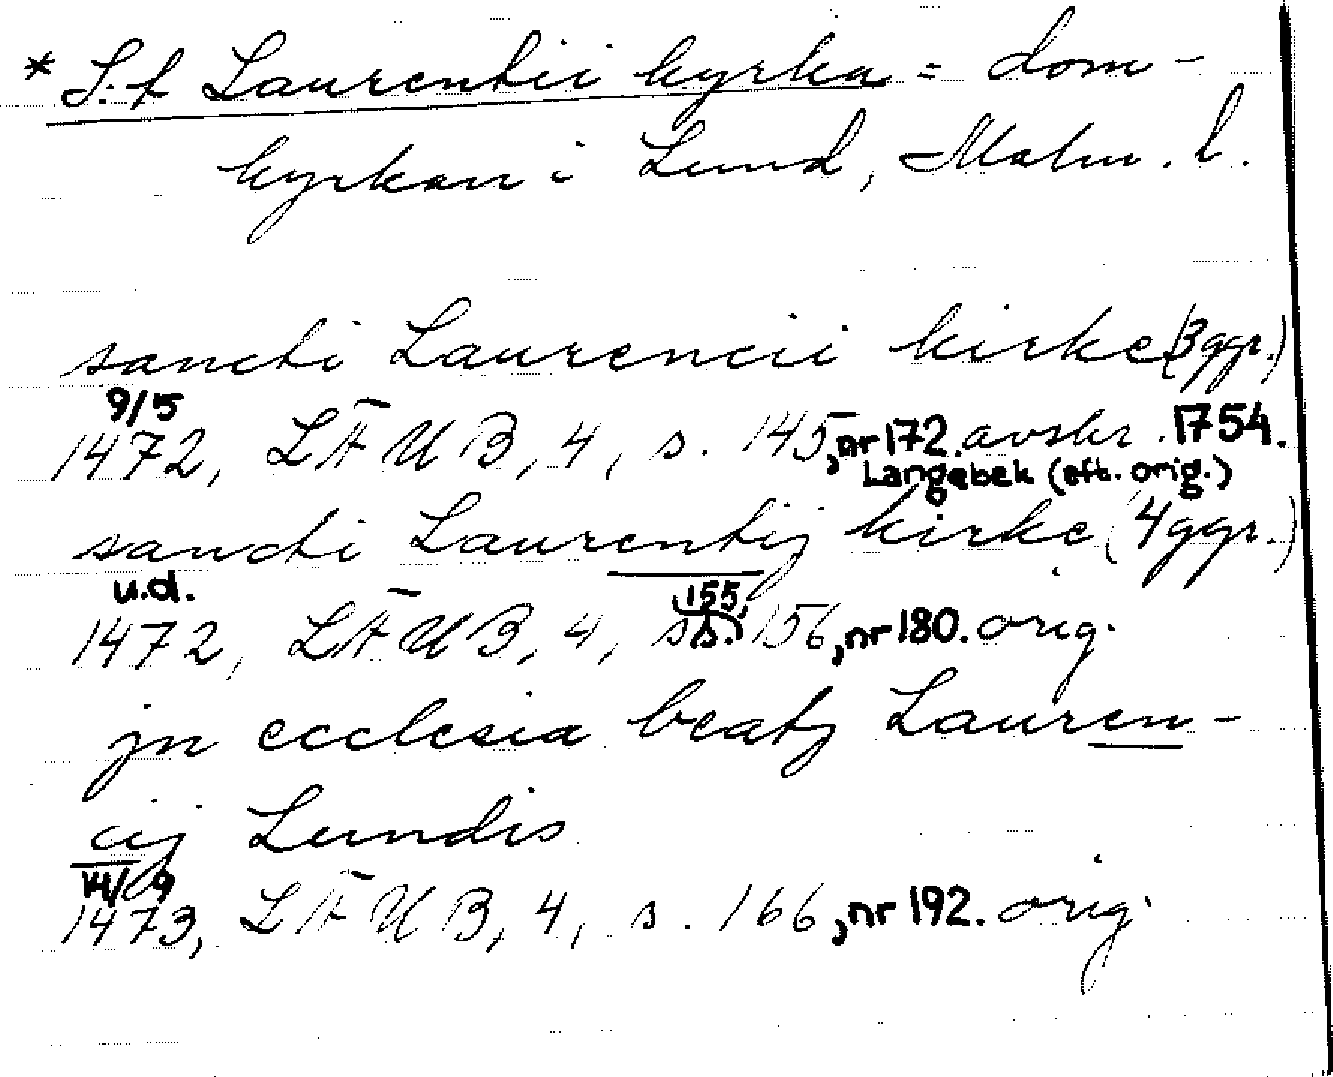 * S:t Laurentii kyrka = dom-
kyrkan i Lund, Malm. l.
sancti Laurencii kirke (3 ggr.)
9/5
1472, LÄUB, 4, s. 145, nr 172. avskr. 1754.
Langebek (eft. orig.)
sancti Laurentij kirke (4 ggr.)
u.d.
1472, LÄUB, 4, s. 155, 156, nr 180. orig.
jn ecclesia beatj Lauren-
cij Lundis
14/9
1473, LÄUB, 4, s. 166, nr 192. orig.